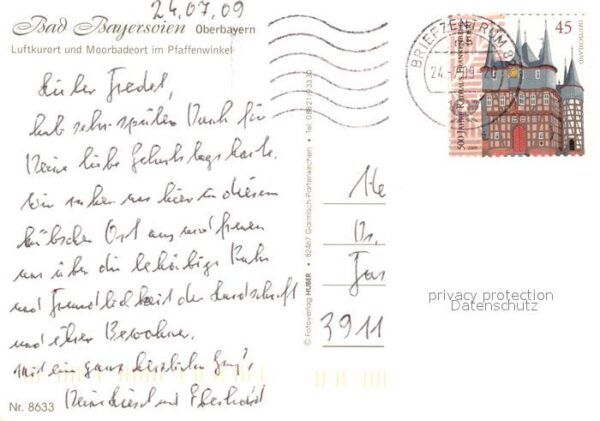 24.07.09
Bad Bayersoien Oberbayern
Luftkurort und Moorbadeort im Pfaffenwinkel
Lieber Fredel,
hab sehr späten Dank für
Deine liebe Geburtstagskarte.
Wir ruhen uns hier in diesem
hübschen Ort aus und freuen
uns über die behäbige Ruhe
und Freundlichkeit der Landschaft
und ihrer Bewohner.
Mit ein ganz herzlichen Gruß
Deine und Eberhard
Nr. 8633
© Fotoverlag HUBER • 82467 Garmisch-Partenkirchen • Tel.
BRIEFZENTRUM 8
24.
45
DEUTSCHLAND
500 Jahre Rathaus Frankenberg
He
Dr.
3911
privacy protection
Datenschutz